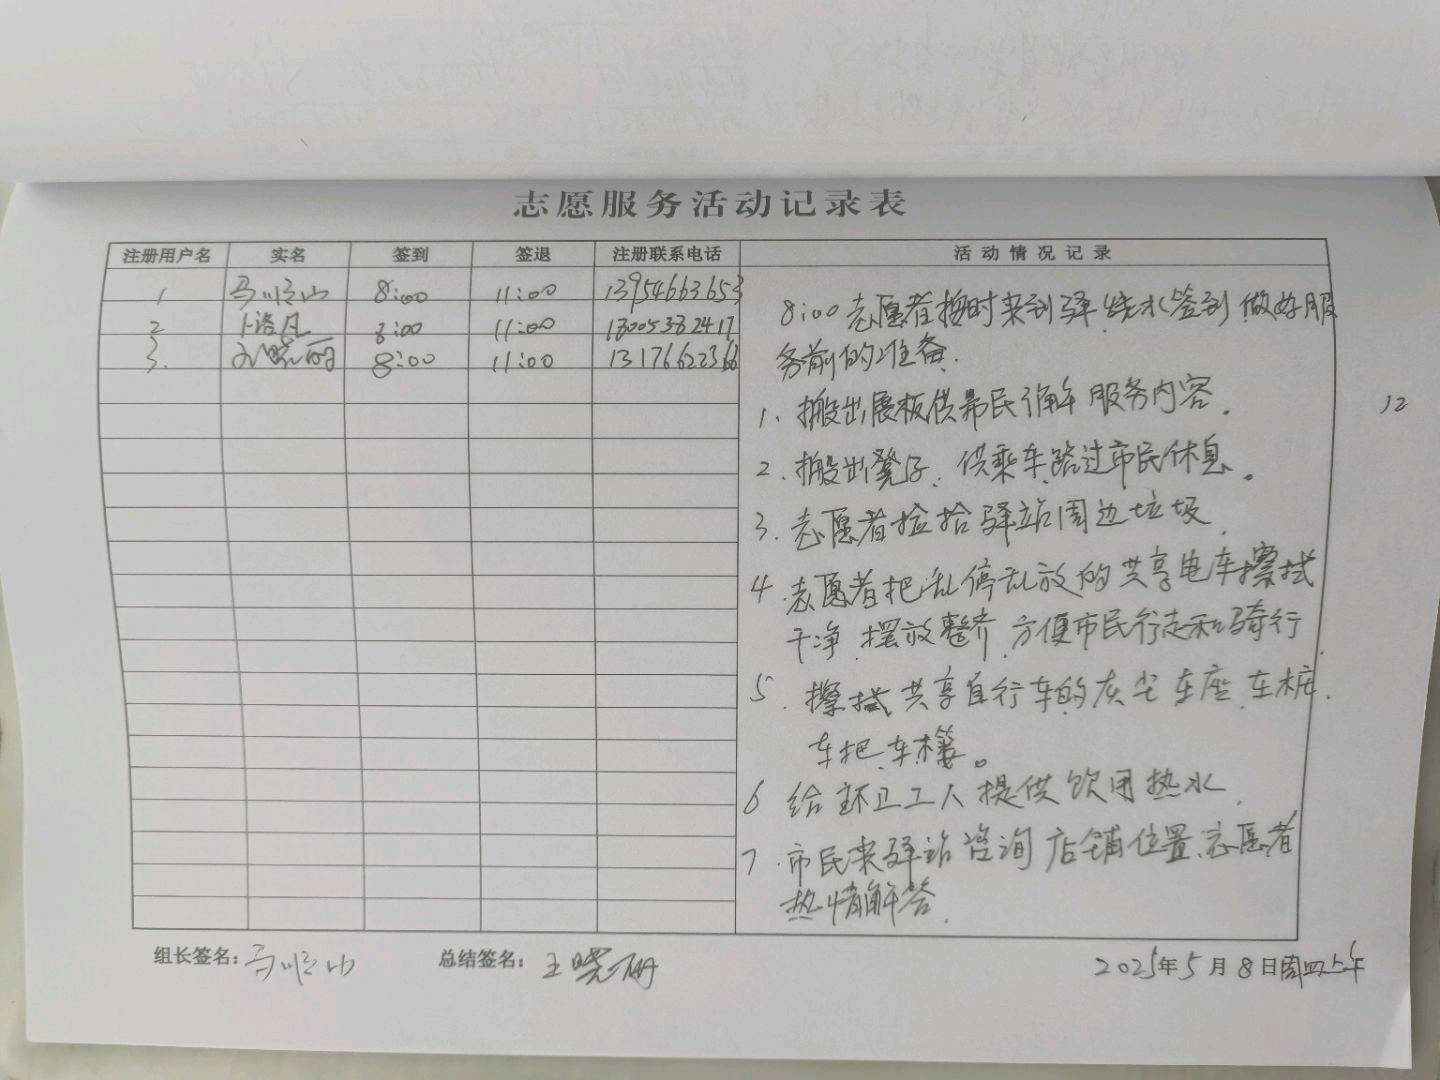 志愿服务活动记录表
注册用户名 实名 签到 签退 注册联系电话 活动情况记录
1 马顺山 8:00 11:00 13954663653
2 卜洛凡 8:00 11:00 18005382417
3. 刘晓丽 8:00 11:00 13176622366
8:00志愿者按时来到驿.烧水签到.做好服
务前的准备.
1、搬出展板供市民了解服务内容.
12
2.搬出凳子.供乘车路过市民休息。
3.志愿者捡拾驿站周边垃圾.
4.志愿者把乱停乱放的共享电车擦拭
干净.摆放整齐.方便市民行走和骑行.
5.擦拭共享自行车的灰尘.车座.车桩.
车把.车楼。
6 给环卫工人提供饮用热水.
7.市民来驿站咨询店铺位置.志愿者
热情解答.
组长签名:马顺山 总结签名:王晓丽 2025年5月8日周四上午